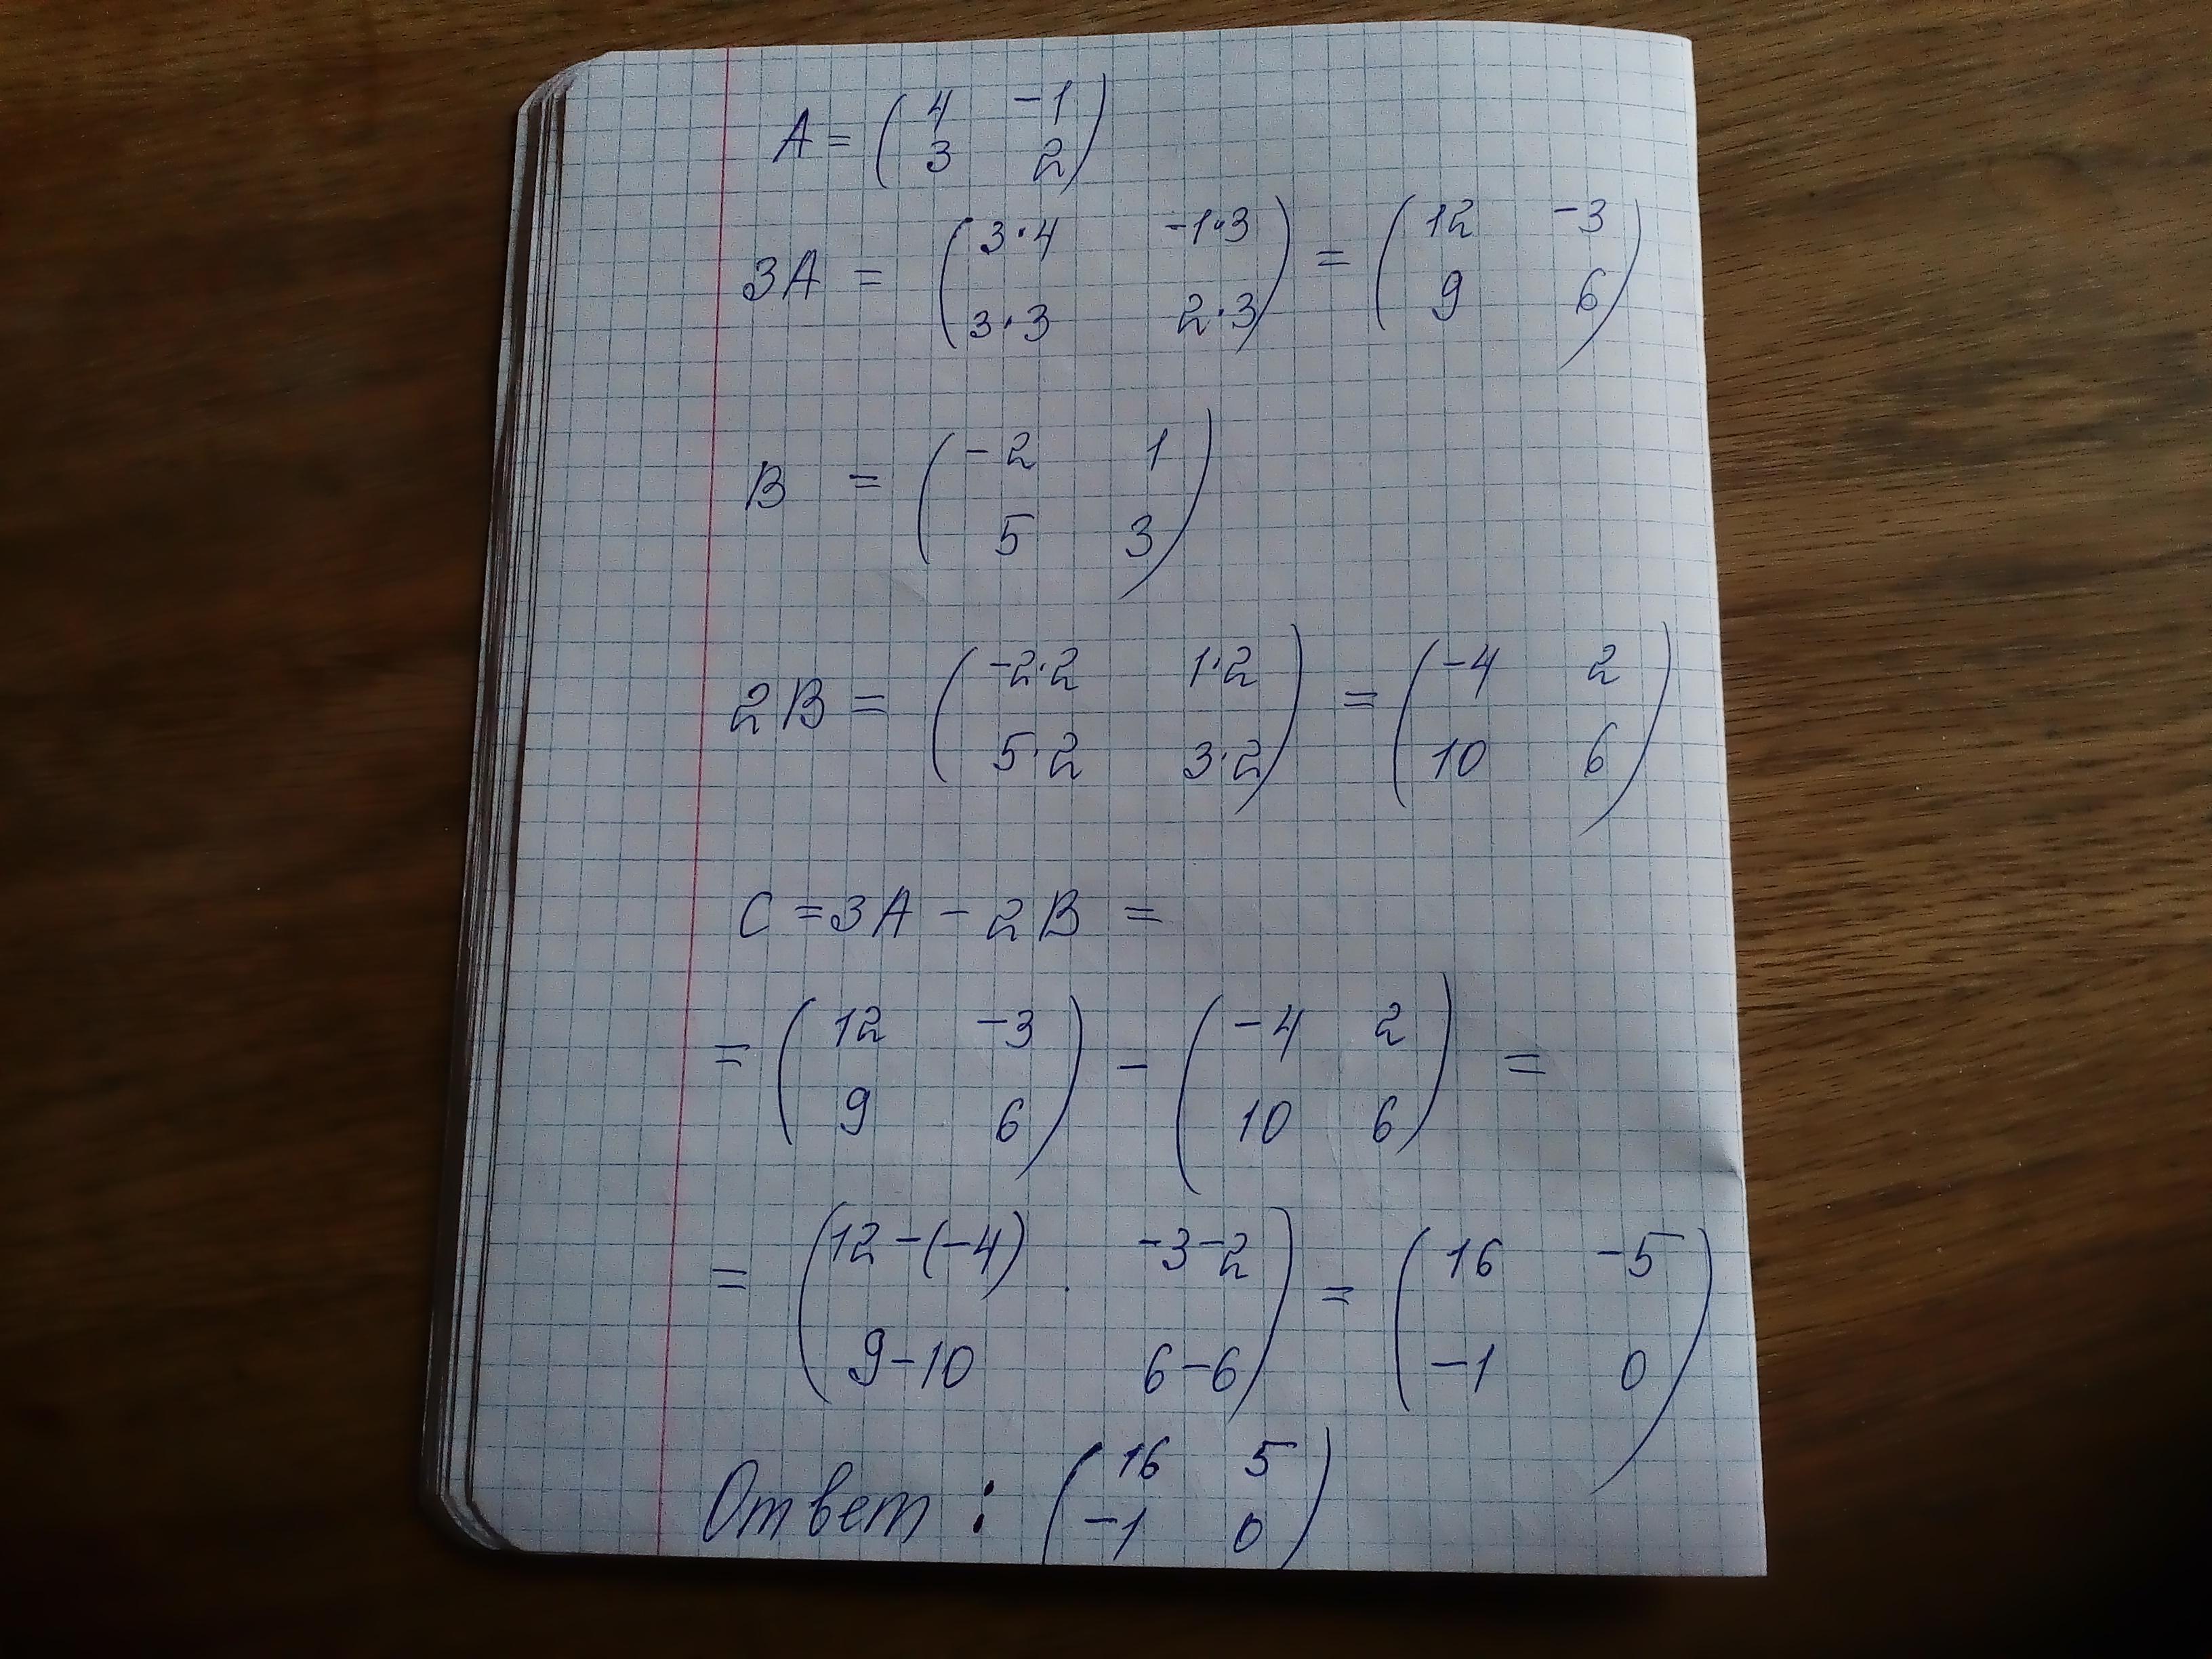 A = ( 4 -1
3 2 )
3A = ( 3·4 -1·3
3·3 2·3 ) = ( 12 -3
9 6 )
B = ( -2 1
5 3 )
2B = ( -2·2 1·2
5·2 3·2 ) = ( -4 2
10 6 )
C = 3A - 2B =
= ( 12 -3
9 6 ) - ( -4 2
10 6 ) =
= ( 12-(-4) -3-2
9-10 6-6 ) = ( 16 -5
-1 0 )
Ответ : ( 16 5
-1 0 )